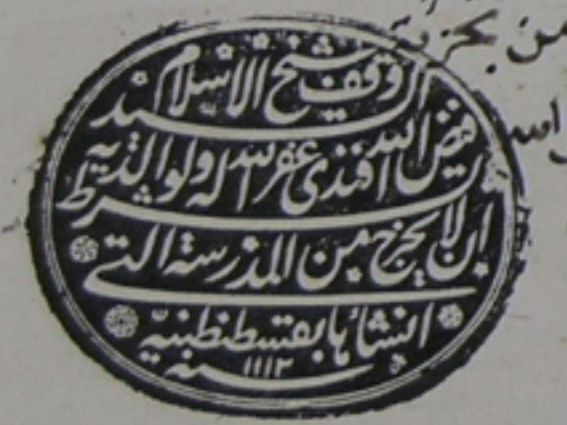 من بحزية
وقف شيخ الاسلام السيد
فيض الله افندى غفر الله له ولوالديه بشرط
ان لا يخرج من المدرسة التى
انشأها بقسطنطنية
سنه ١١١٣